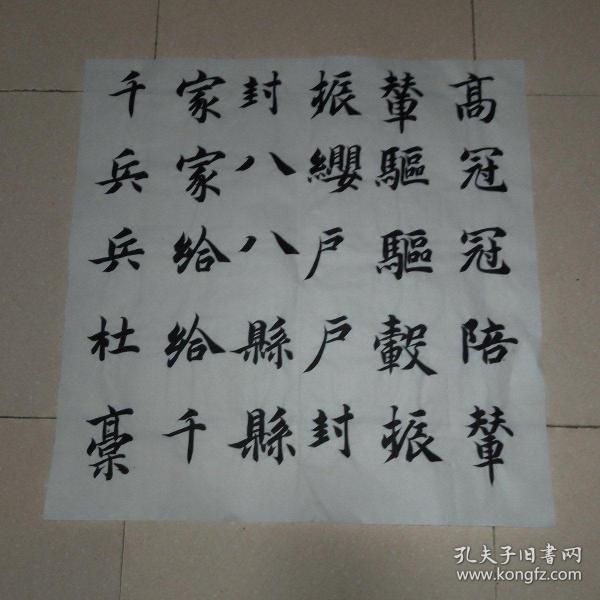 高冠冠陪輦
輦驅驅轂振
振纓户户封
封八八縣縣
家家給給千
千兵兵杜稾
孔夫子旧书网
www.kongfz.com